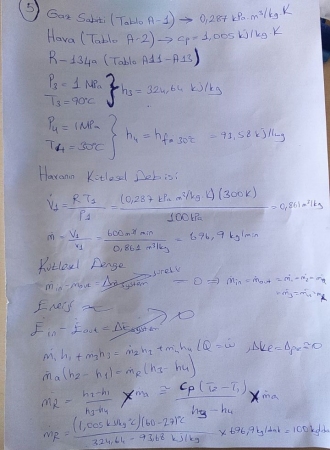 5 Gaz Sabiti (Tablo A-1) → 0,287 kPa.m³/kg.K
Hava (Tablo A-2) → Cp = 1,005 kJ/kg.K
R-134a (Tablo A11-A13)
P3 = 1 MPa
T3 = 90°C } h3 = 324,64 kJ/kg
P4 = 1 MPa
T4 = 30°C } h4 = hf@30°C = 93,58 kJ/kg
Havanın Kütlesel Debisi
V1 = R T1 / P1 = (0,287 kPa m³/kg.K)(300K) / 100 kPa = 0,861 m³/kg
ṁ = V1 / v1 = 600 m³/min / 0,861 m³/kg = 696,9 kg/min
Kütlesel Denge
ṁin - ṁout = Δṁsystem sürekli = 0 ⇒ ṁin = ṁout = ṁ1 = ṁ2 = ṁa
= ṁ3 = ṁ4 = ṁR
Enerji
Ein - Eout = ΔEsystem 0
ṁ1h1 + ṁ3h3 = ṁ2h2 + ṁ4h4 (Q = ẇ, Δke = Δpe ≅ 0
ṁa(h2 - h1) = ṁR(h3 - h4)
ṁR = h2 - h1 / h3 - h4 × ṁa ≅ Cp(T2 - T1) / h3 - h4 × ṁa
ṁR = (1,005 kJ/kg°C)(60-27)°C / 324,64 - 93,58 kJ/kg × 696,9 kg/dak = 100 kg/dak